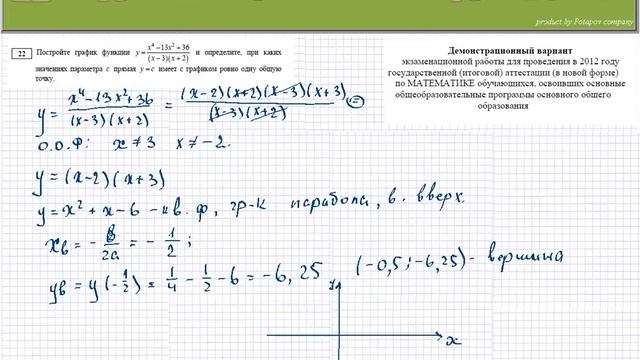 product by Potapov company
22 Постройте график функции y = (x⁴ − 13x² + 36)/((x − 3)(x + 2)) и определите, при каких
значениях параметра c прямая y = c имеет с графиком ровно одну общую
точку.
Демонстрационный вариант
экзаменационной работы для проведения в 2012 году
государственной (итоговой) аттестации (в новой форме)
по МАТЕМАТИКЕ обучающихся, освоивших основные
общеобразовательные программы основного общего
образования
y = (x⁴ − 13x² + 36)/((x−3)(x+2)) = ((x−2)(x+2)(x−3)(x+3))/((x−3)(x+2)) =
О.О.Ф: x ≠ 3 x ≠ −2.
y = (x−2)(x+3)
y = x² + x − 6 − кв. ф, гр-к парабола, в. вверх.
xв = − в/2а = − 1/2 ;
yв = y(−1/2) = 1/4 − 1/2 − 6 = −6,25 (−0,5; −6,25) − вершина
y
x